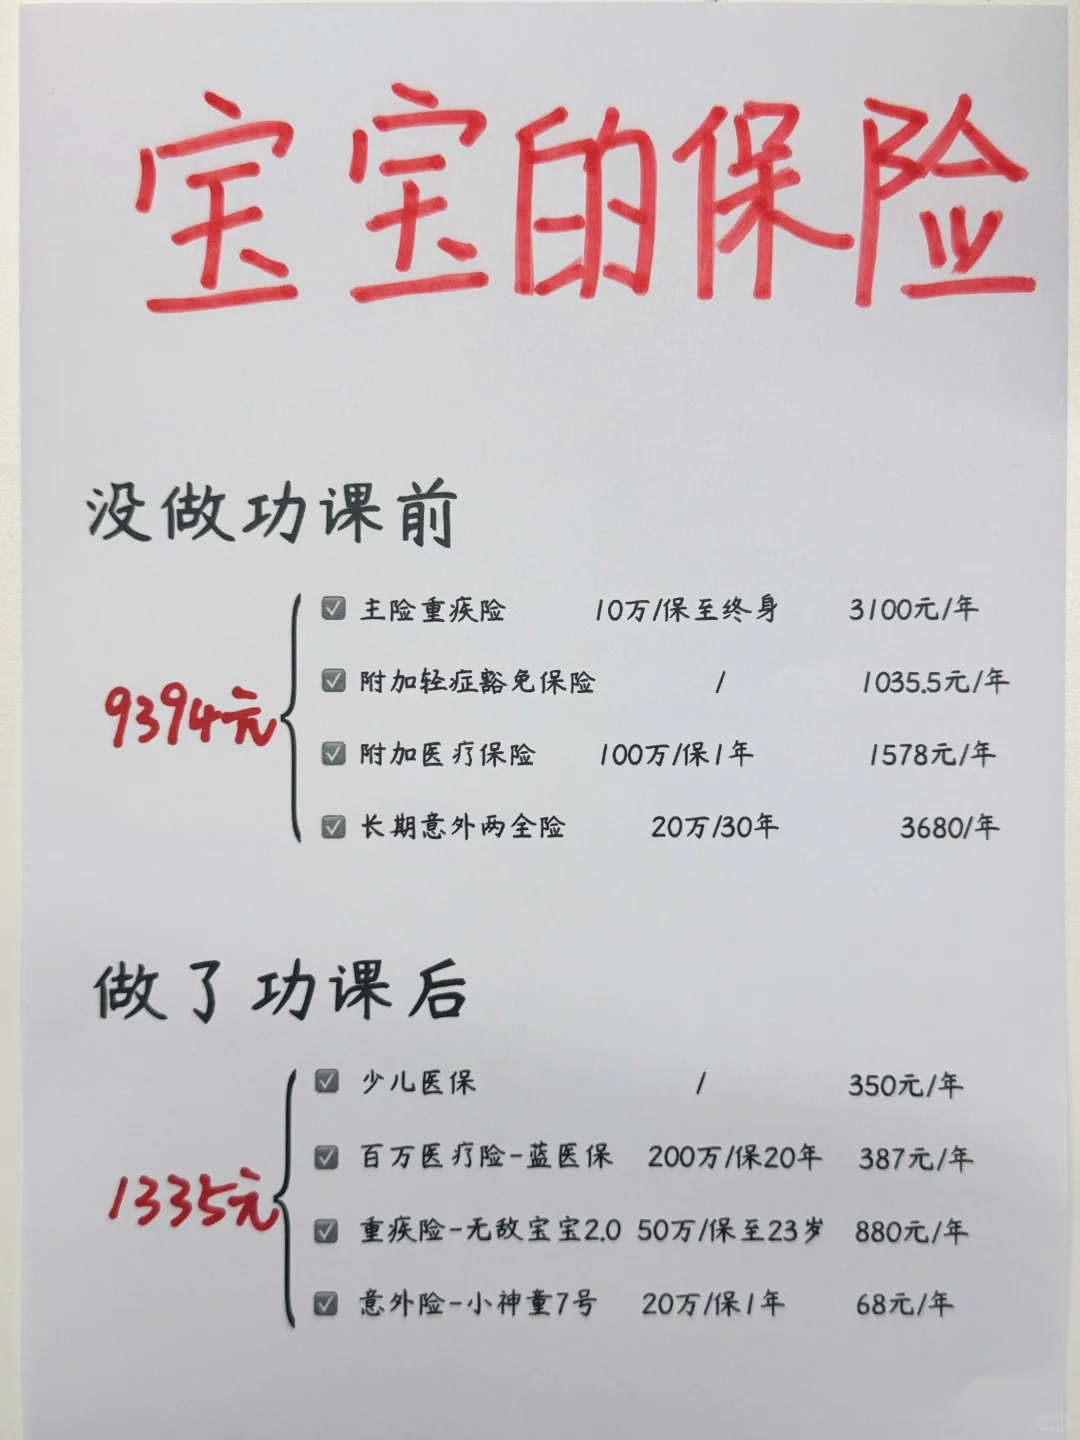 宝宝的保险
没做功课前
9394元
☑ 主险重疾险 10万/保至终身 3100元/年
☑ 附加轻症豁免保险 / 1035.5元/年
☑ 附加医疗保险 100万/保1年 1578元/年
☑ 长期意外两全险 20万/30年 3680/年
做了功课后
1335元
☑ 少儿医保 / 350元/年
☑ 百万医疗险-蓝医保 200万/保20年 387元/年
☑ 重疾险-无敌宝宝2.0 50万/保至23岁 880元/年
☑ 意外险-小神童7号 20万/保1年 68元/年